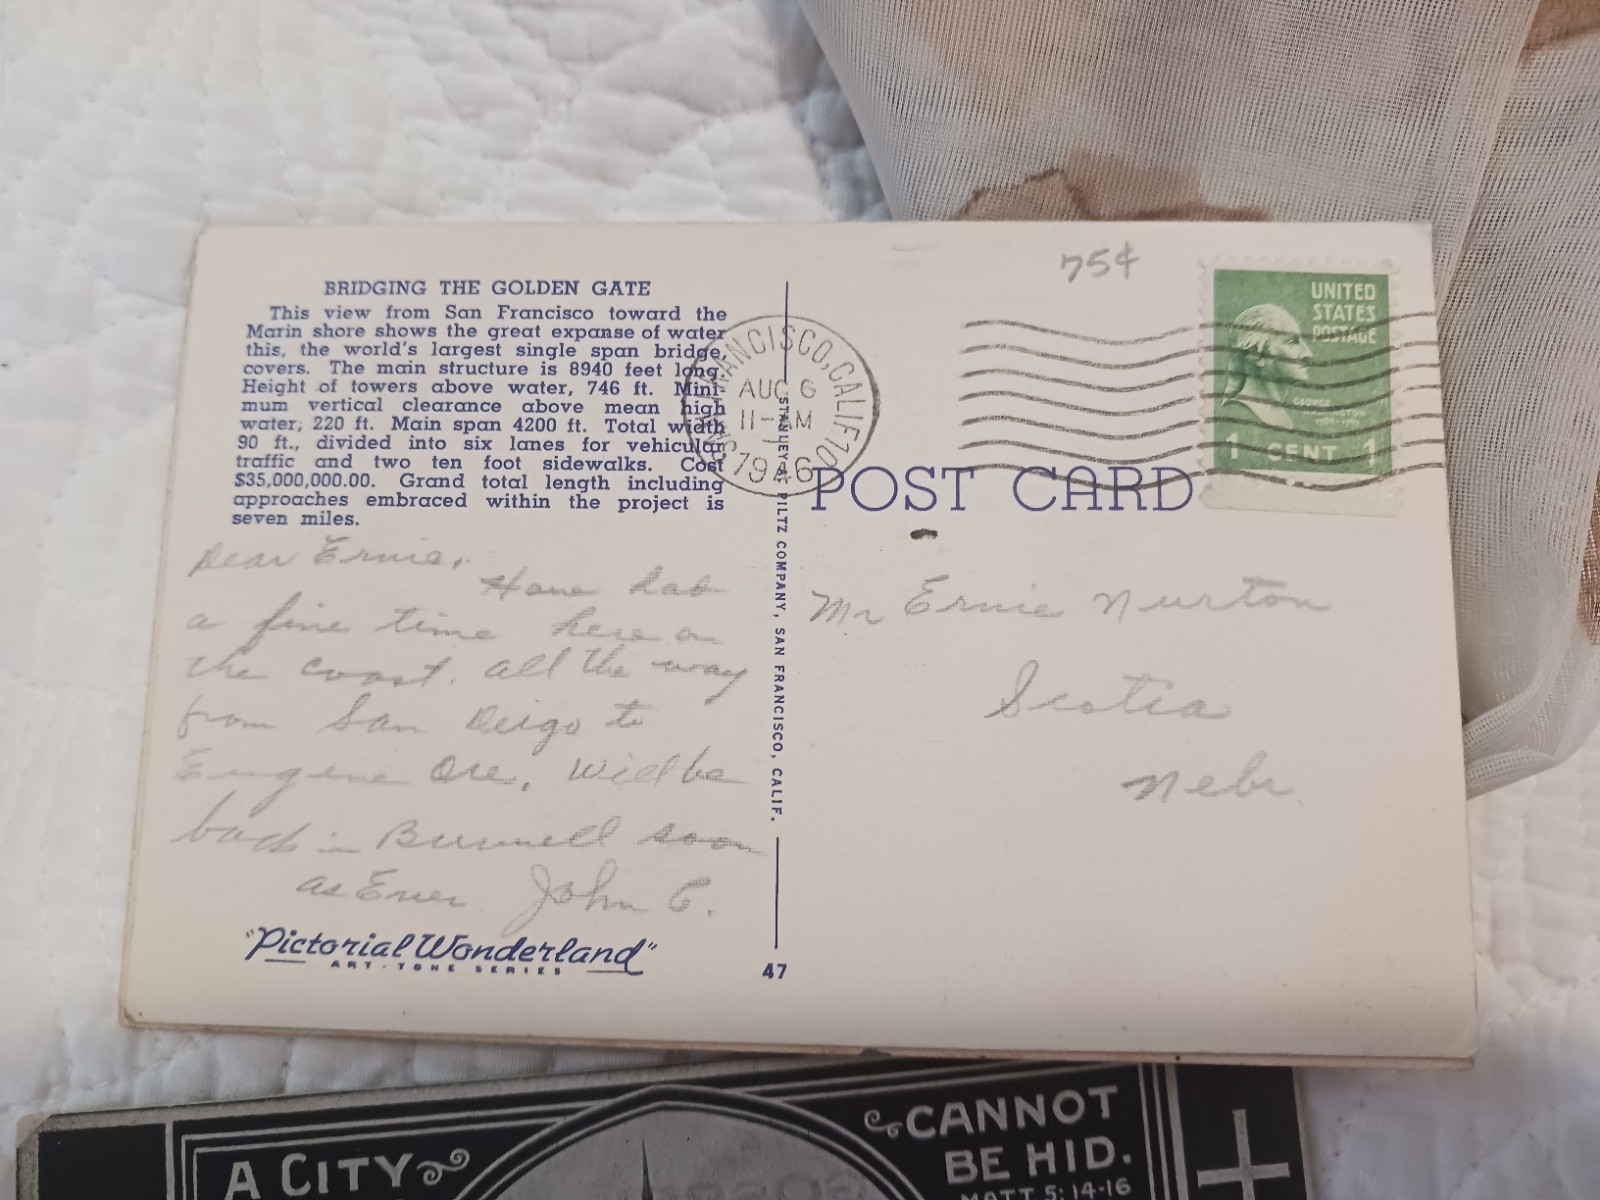 BRIDGING THE GOLDEN GATE
This view from San Francisco toward the
Marin shore shows the great expanse of water
this, the world's largest single span bridge,
covers. The main structure is 8940 feet long.
Height of towers above water, 746 ft. Mini-
mum vertical clearance above mean high
water, 220 ft. Main span 4200 ft. Total width
90 ft., divided into six lanes for vehicular
traffic and two ten foot sidewalks. Cost
$35,000,000.00. Grand total length including
approaches embraced within the project is
seven miles.
Dear Ernie,
Have had
a fine time here on
the coast. all the way
from San Deigo to
Eugene Ore. Will be
back in Burwell soon
as Ever John C.
"Pictorial Wonderland"
ART-TONE SERIES
STANLEY A. PILTZ COMPANY, SAN FRANCISCO, CALIF.
47
SAN FRANCISCO, CALIF. 10
AUG 6
11-AM
1946
75¢
UNITED
STATES
POSTAGE
GEORGE
WASHINGTON
1 CENT 1
POST CARD
Mr Ernie Nurton
Scotia
Nebr.
A CITY
CANNOT
BE HID.
MATT 5:14-16